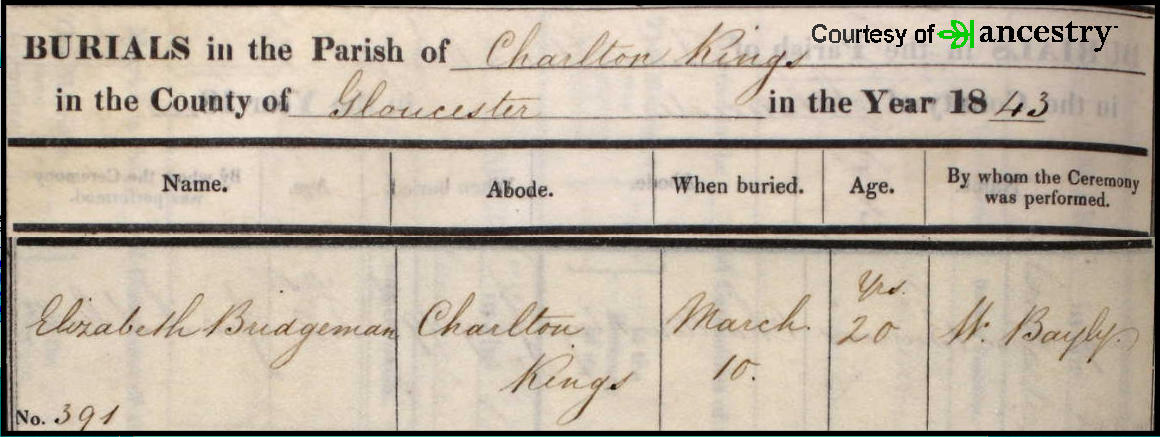 Courtesy of ancestry
BURIALS in the Parish of Charlton Kings
in the County of Gloucester in the Year 1843
Name. Abode. When buried. Age. By whom the Ceremony
was performed.
Yrs.
Elizabeth Bridgeman Charlton March 20 W. Bayly.
Kings 10.
No. 391